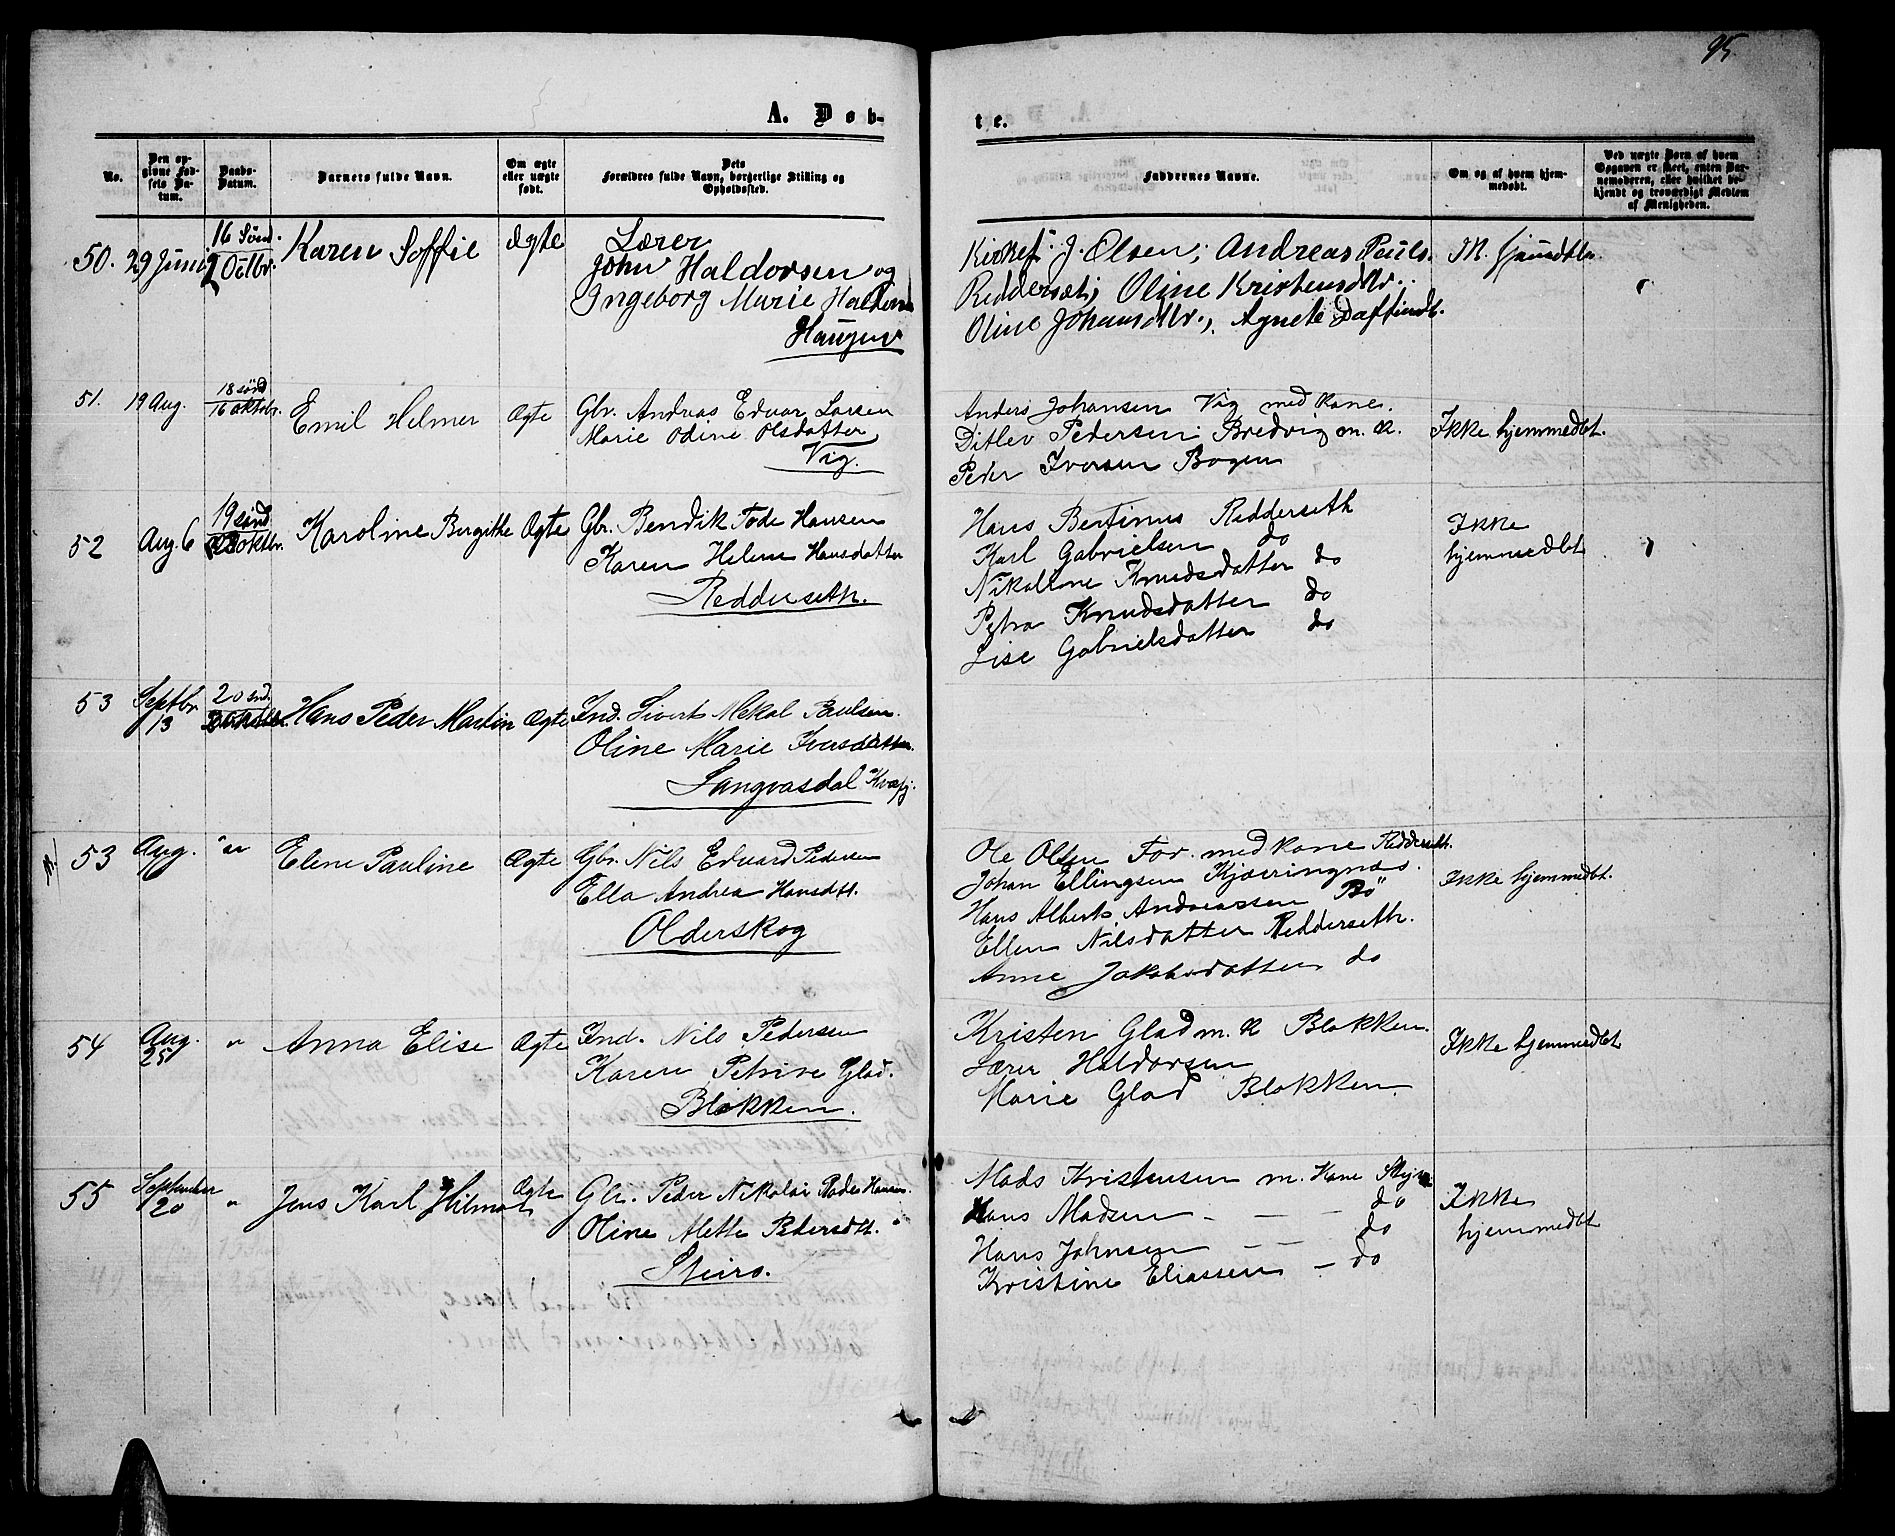 95.
A. Døb-
te.
No.
Den opgivne Fødsels Datum.
Daabs-Datum.
Barnets fulde Navn.
Om ægte eller uægte født.
Dets Forældres fulde Navn, borgerlige Stilling og Opholdssted.
Faddernes Navne.
Om og af hvem hjemmedøbt.
Ved uægte Børn af hvem Opgaven er skeet, enten Barnemoderen, eller hvilket bekjendt og troværdigt Medlem af Menigheden.
50. 29 Juni 16 Sønd. 2 Octbr. Karen Soffie Ægte
Lærer
John Haldorsen og
Ingeborg Marie
Haugen
Kirkes. J. Olsen; Andreas Pauls.
Reddersæt; Oline Kristensdtr.;
Oline Johansdtr., Agnete
M.
51. 19 Aug. 18 sønd 16 oktobr. Emil Hilmer Ægte
Gbr. Andreas Edvar Larsen
Marie Odine Olsdatter
Vig.
Anders Johansen Vig med kone.
Ditlev Pedersen Bredvig m. K.
Peder Iversen Bogen
Ikke hjemmedbt.
52 Aug. 6 19 sønd oktbr. Karoline Bergithe Ægte
Gbr. Bendik Tode Hansen
Karen Helene Hansdatter
Redderseth.
Hans Bertinus Redderseth
Karl Gabrielsen do
Nikoline Knudsdatter do
Petra Knudsdatter do
Lise Gabrielsdatter do
Ikke
hjemmedbt
53 Septbr 13 20 snd. Hans Peder Martin Ægte
Ind. Sivert Mekal Paulsen.
Oline Marie Iversdatter.
Langvasdal Kvæfj.
53 Aug. " Elene Pauline Ægte
Gbr. Nils Edvard Pedersen
Ella Andrea Hansdtt.
Olderskog
Ole Olsen For. med kone Reddersth.
Johan Ellingsen Kjæringnæs.
Hans Albert Andreassen Bö
Ellen Nilsdatter Reddersth.
Anne Jakobsdatter do
Ikke hjemmedbt.
54 Aug. 25 " Anna Elise Ægte
Ind. Nils Pedersen
Karen Petrine Glad.
Blokken.
Kristen Glad m. K Blokken.
Lærer Haldorsen
Marie Glad Blokken
Ikke hjemmedbt
55 September 20 " Jens Karl Hilmar Ægte
Gbr. Peder Nikolai Hansen
Oline Alette Pedersdtt.
Steiro.
Mads Kristensen m. Kone
Hans Madsen - - - do
Hans Johnsen - - do
Kristine Eliassen - do
Ikke
hjemmedbt